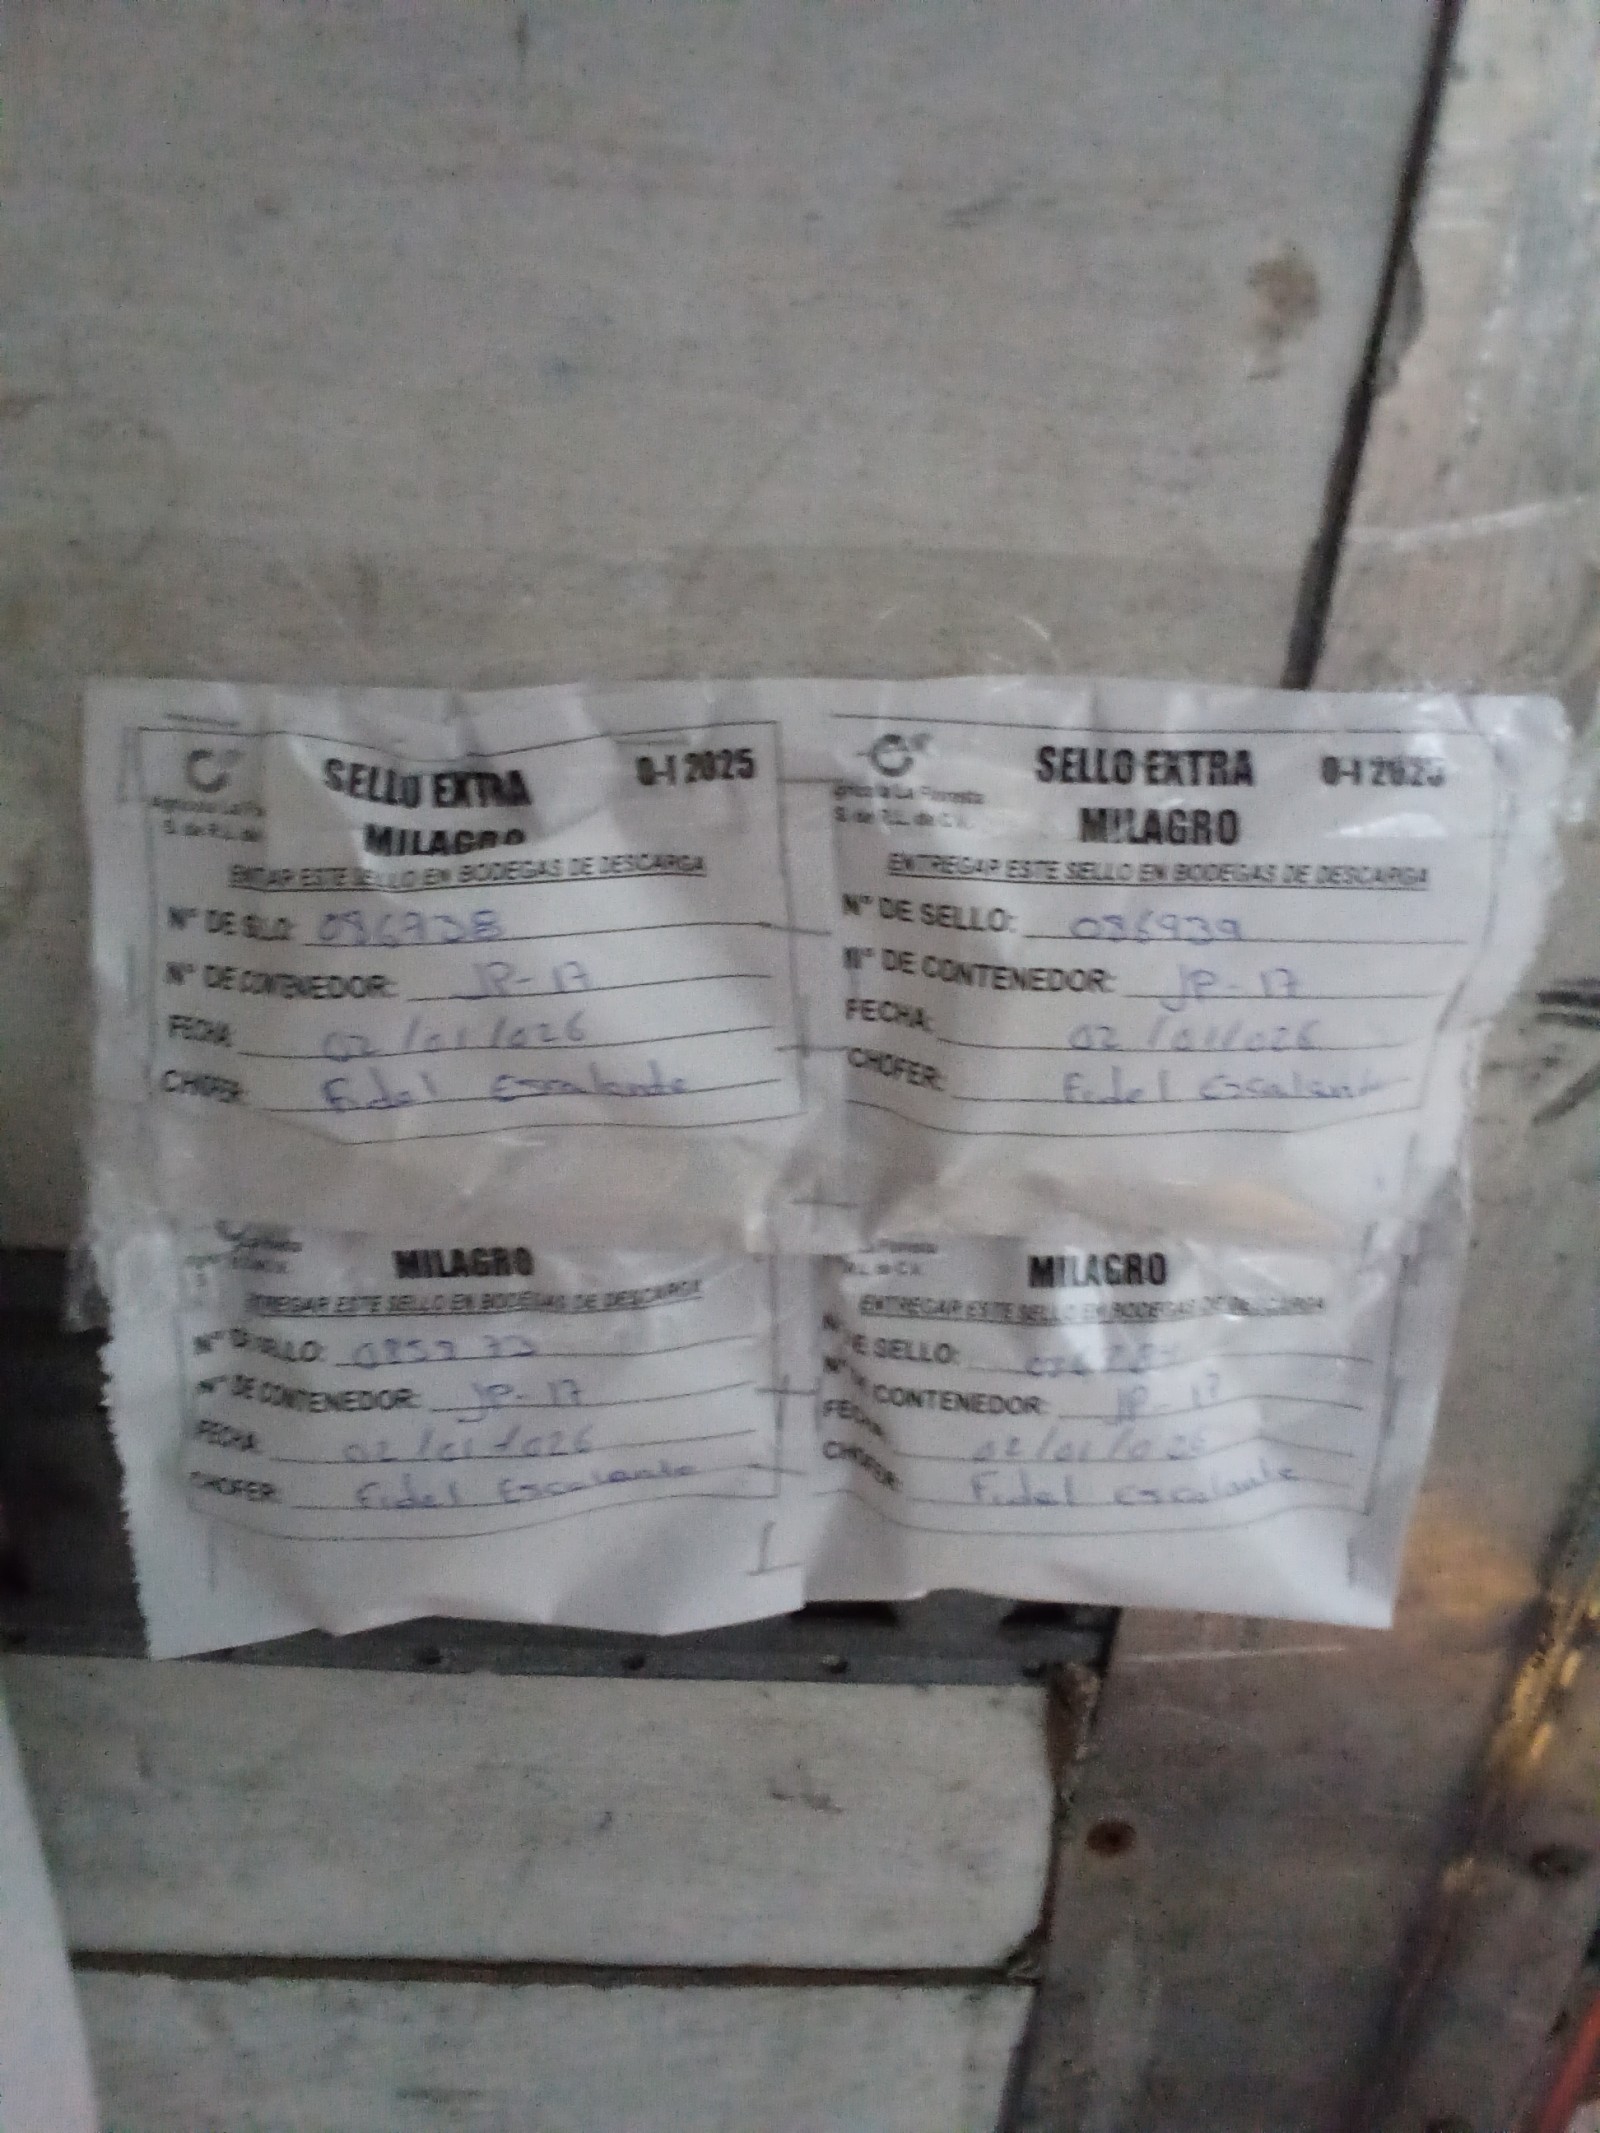 SELLO EXTRA
O-I 2025
MILAGRO
ENTREGAR ESTE SELLO EN BODEGAS DE DESCARGA
N° DE SELLO: 086938
N° DE CONTENEDOR: JP-17
FECHA: 02/01/026
CHOFER: Fidel Escalante
Agrícola La Floresta
S. de R.L. de C.V.
SELLO EXTRA
O-I 2025
MILAGRO
ENTREGAR ESTE SELLO EN BODEGAS DE DESCARGA
N° DE SELLO: 086939
N° DE CONTENEDOR: JP-17
FECHA: 02/01/026
CHOFER: Fidel Escalante
MILAGRO
TREGAR ESTE SELLO EN BODEGAS DE DESCARGA
N° DE SELLO:
N° DE CONTENEDOR: JP-17
FECHA: 02/01/026
CHOFER: Fidel Escalante
MILAGRO
ENTREGAR ESTE SELLO EN BODEGAS DE DESCARGA
E SELLO:
CONTENEDOR: JP-17
FECHA: 02/01/026
CHOFER: Fidel Escalante